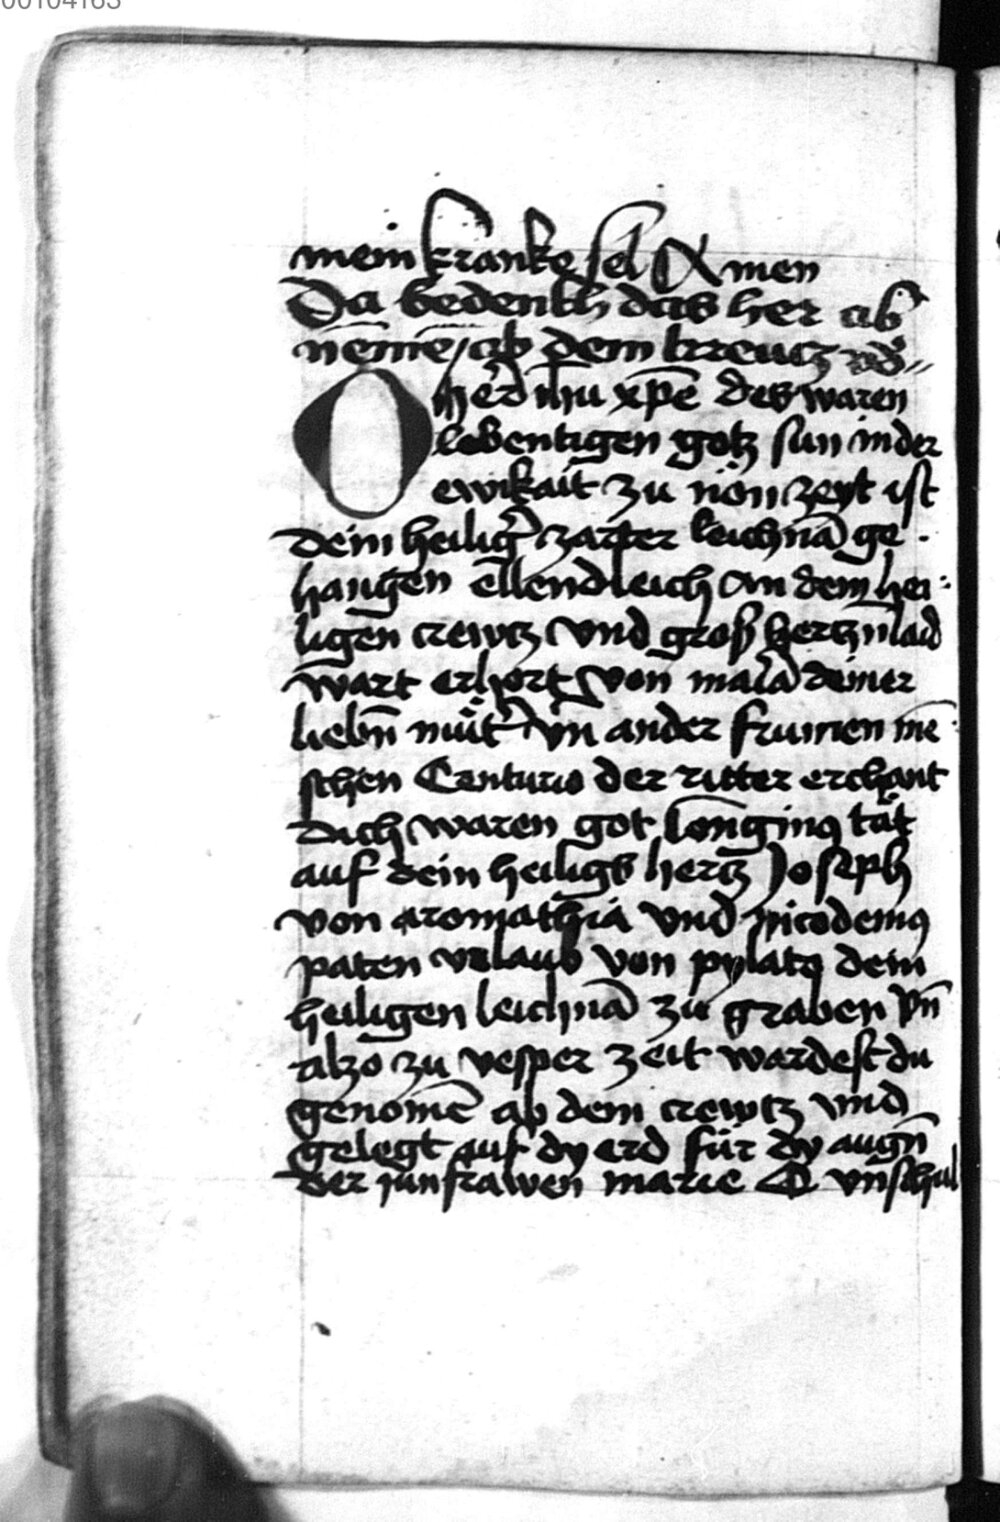 00104163
mein kranke sel Amen
Da bedenkh das her ab
nēmē / ab dem krewcz
O herd ihu xpē des waren
lebentigen gotz sun in der
ewikait zu nōn zeyt ist
dein heilig̉ zarter leichnā ge
hangen ellendleich an dem hei
ligen crewtz vnd groß hertznlaid
wart erhort von maria deiner
liebn̄ mut̉ vn̄ ander frumen mē
schen Centurio der ritter erchant
dich waren got longinꝰ tät
auf dein heiligs hertz Joseph
von aromathia vnd nicodemꝰ
paten vrlaub von pylatꝰ dem
heiligen leichnā zu graben vn̄
alzo zu vesper zeit wardest du
genomē ab dem crewtz vnd
gelegt auf dy erd für dy augn̄
der junfrawen marie O vnschul